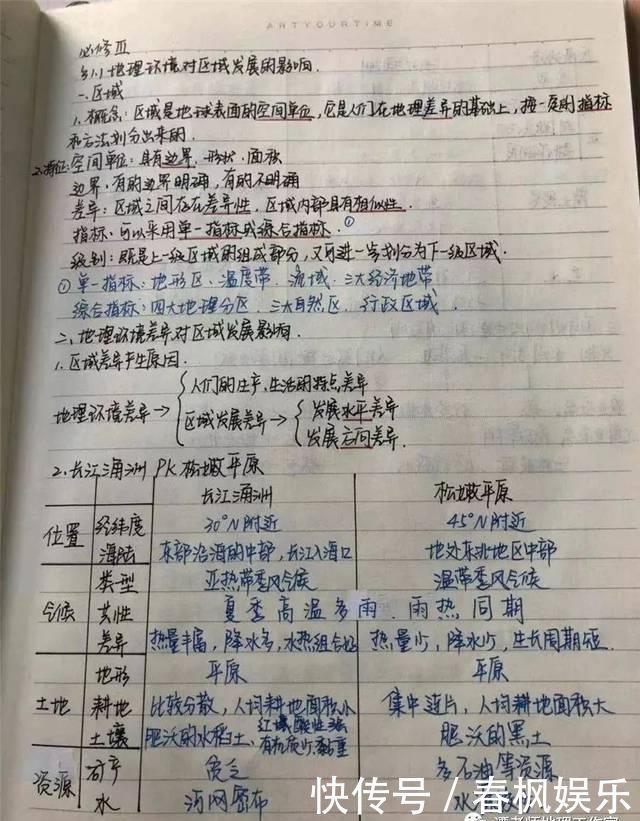 ARTYOURTIME
必修Ⅲ
§1.1 地理环境对区域发展的影响.
一.区域
1.概念:区域是地球表面的空间单位,它是人们在地理差异的基础上,按一定的指标
和方法划分出来的.
2.特征:空间单位:具有边界、形状、面积
边界:有的边界明确,有的不明确
差异:区域之间存在差异性,区域内部具有相似性.
指标:可以采用单一指标或综合指标.①
级别:既是上一级区域的组成部分,又可进一步划分为下一级区域.
①单一指标:地形区、温度带、流域、三大经济地带
综合指标:四大地理分区、三大自然区、行政区域.
二、地理环境差异对区域发展影响.
1.区域差异产生原因.
人们的生产、生活的特点差异
地理环境差异→ 区域发展差异→ 发展水平差异
发展方向差异.
2.长江三角洲 PK 松嫩平原
长江三角洲 松嫩平原
位置 经纬度 30°N附近 45°N附近
海陆 东部沿海的中部,长江入海口 地处东北地区中部
类型 亚热带季风气候 温带季风气候
气候 共性 夏季高温多雨、雨热同期
差异 热量丰富,降水多,水热组合好 热量少,降水少,生长周期短.
地形 平原 平原
土地 耕地 比较分散,人均耕地面积小 集中连片,人均耕地面积大
土壤 肥沃的水稻土、红壤酸性强 有机质少黏重 肥沃的黑土
资源 矿产 贫乏 多石油等资源
水 河网密布 水
快传号/春枫娱乐